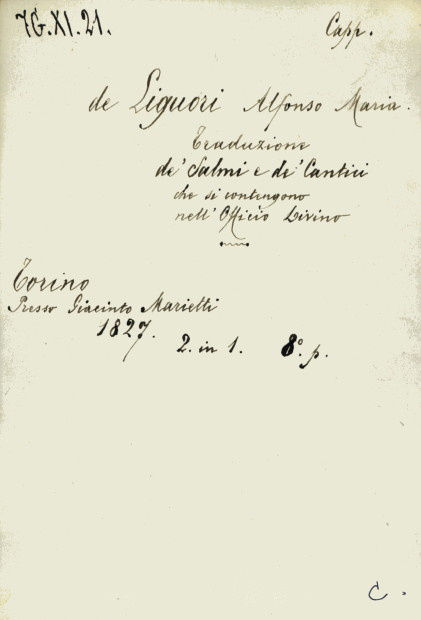 7G.XI.21.
Capp.
de Liguori Alfonso Maria.
Traduzione
de' Salmi e de' Cantici
che si contengono
nell' Officio Divino
Torino
Presso Giacinto Marietti
1827.
2. in 1. 8º. p.
C.